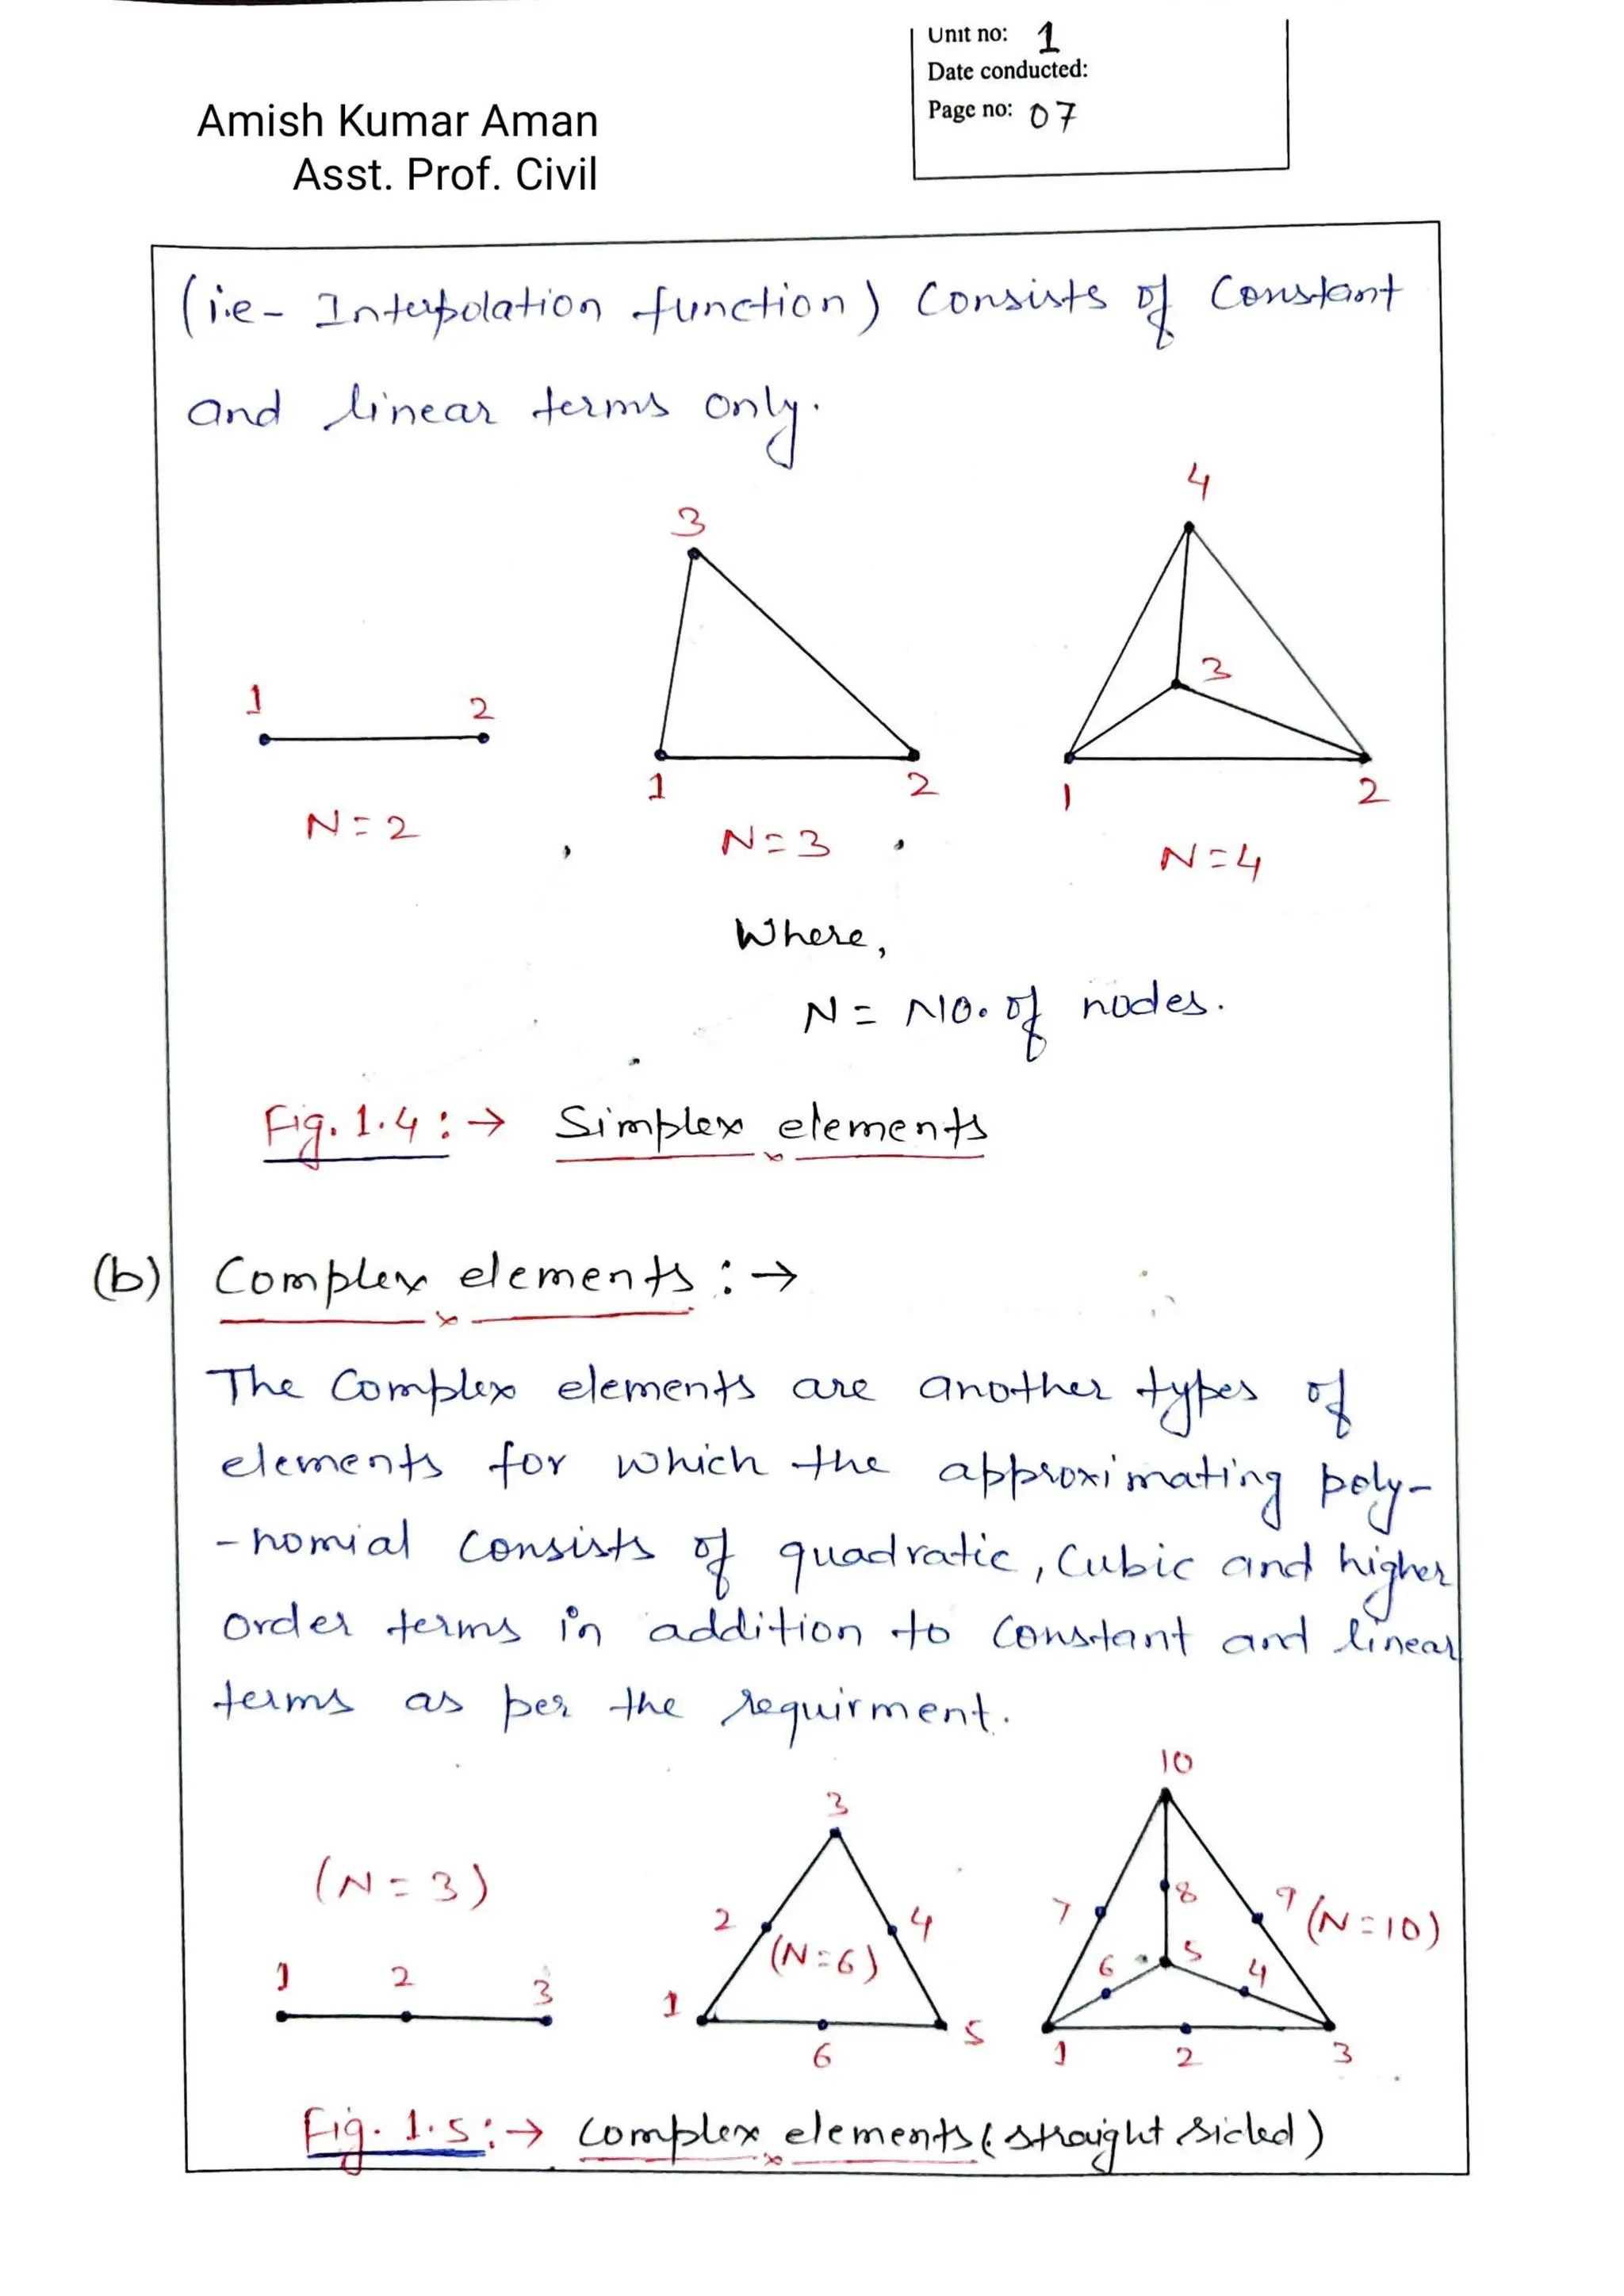 Unit no: 1
Date conducted:
Page no: 07
Amish Kumar Aman
Asst. Prof. Civil
(i.e- Interpolation function) Consists of Constant
and linear terms only.
4
3
3
1 2
1 2
1 2
N=2 , N=3 . N=4
Where,
N= No. of nodes.
Fig. 1.4 :→ Simplex elements
(b) Complex elements :→
The Complex elements are another types of
elements for which the approximating poly-
-nomial consists of quadratic, Cubic and higher
order terms in addition to Constant and linear
terms as per the requirment.
10
3
(N=3)
2 4
(N=6)
7 8 9 (N=10)
6 5 4
1 2 3
1 5
6
1 2 3
Fig. 1.5:→ complex elements (straight sided)